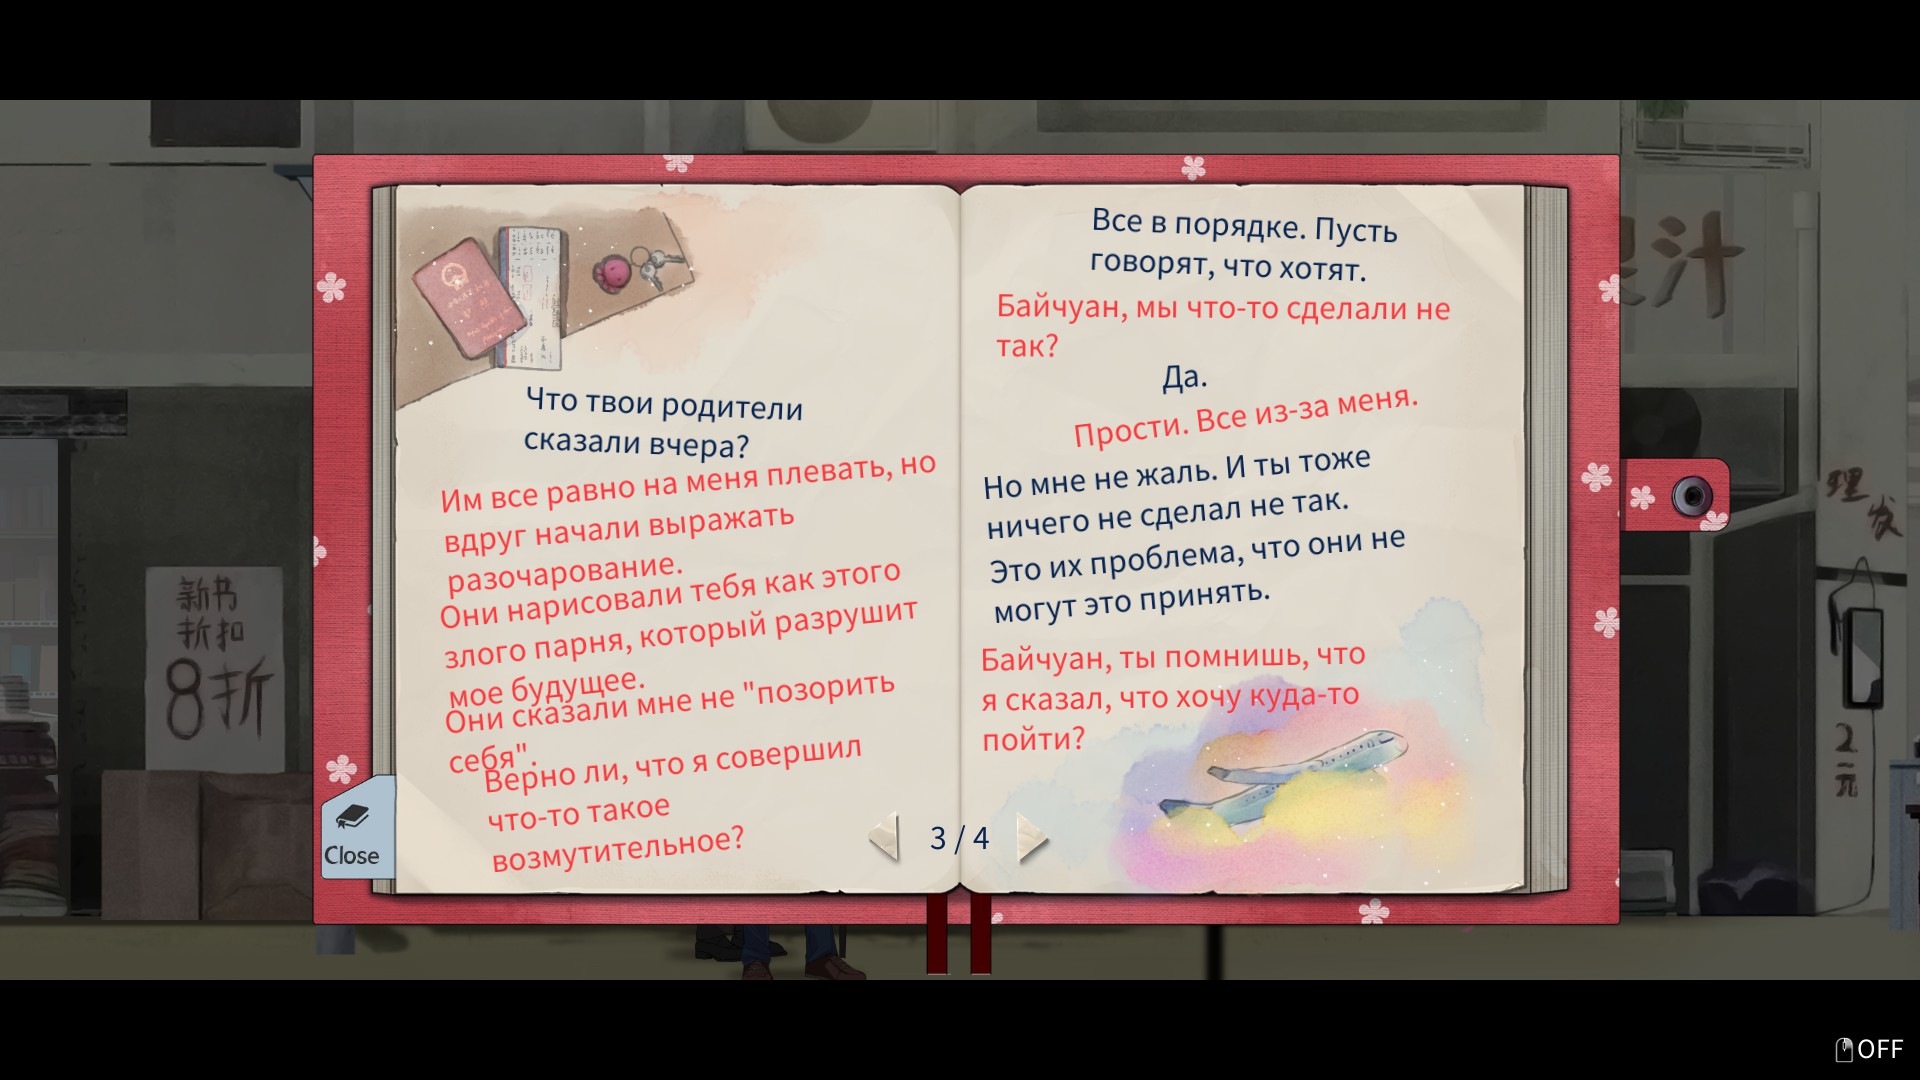 Что твои родители
сказали вчера?
Им все равно на меня плевать, но
вдруг начали выражать
разочарование.
Они нарисовали тебя как этого
злого парня, который разрушит
мое будущее.
Они сказали мне не "позорить
себя".
Верно ли, что я совершил
что-то такое
возмутительное?
Все в порядке. Пусть
говорят, что хотят.
Байчуан, мы что-то сделали не
так?
Да.
Прости. Все из-за меня.
Но мне не жаль. И ты тоже
ничего не сделал не так.
Это их проблема, что они не
могут это принять.
Байчуан, ты помнишь, что
я сказал, что хочу куда-то
пойти?
3 / 4
Close
新书
折扣
8折
汁
理
发
2
元
OFF